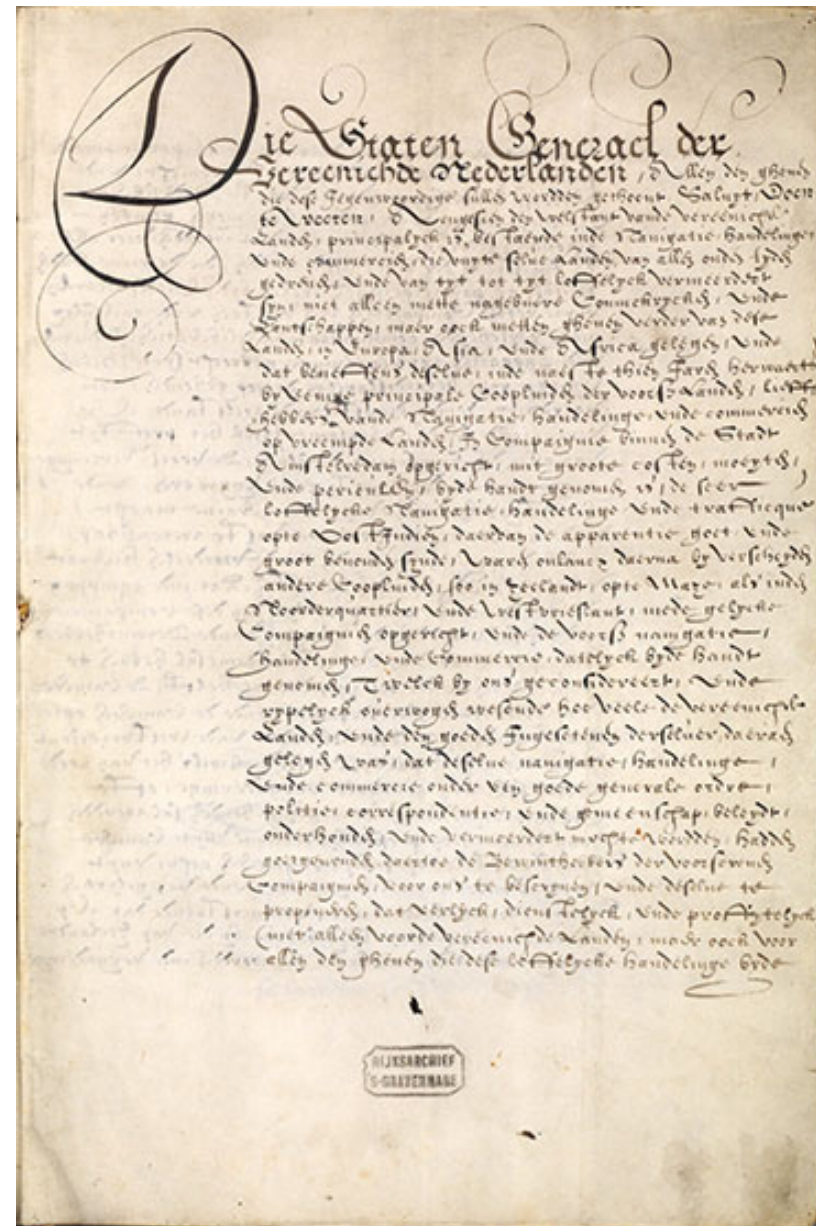 Die Staten Generael der
Vereenichde Nederlanden, Allen den ghenen
die dese Jegenwoordige sullen werdden gethoent Saluyt, Doen
te Weeten, Alzoe gesien den welstant vande vereenichde
Landen, principalyck is bestaende inde Navigatie, handelinge
ende Commercien, die vuyte selve Landen van allen ouden tyden
gedreven, ende van tyt tot tyt loffelyck vermeerdert
syn, niet alleen mette nagebuere Connickrycken, ende
Lantschappen, maer oock metten ghenen verder van dese
Landen, in Europa, Asia, ende Africa gelegen, ende
dat beneffens deselve, inde naeste thien Jaren herwaerts
by eenige principale Cooplieden der voorsz Landen, lieff
hebbers vande Navigatie, handelinge, ende commercien
op vreempde Landen, In Compaignie binnen de Stadt
Amstelredam opgericht, mit groote costen, moeyten,
ende periculen, byde handt genomen is, de seer
loffelycke Navigatie, handelinge ende trafficque
opte Oost Indien, daervan de apparentie goet ende
groot bevonden synde, waren onlancx daerna by verscheyden
andere Cooplieden, soo in Zeelandt, opte Maze, als inden
Noorderquartiere, ende westvrieslant, mede gelycke
Compaignien opgericht, ende de voorsz navigatie,
handelinge, ende Commercie, datelyck byde handt
genomen, Twelck by ons geconsidereert, ende
rypelyck overwogen wesende hoe veele de vereenichde
Landen, ende den goeden Ingesetenen derselver, daeran
gelegen was, dat deselve navigatie, handelinge,
ende commercie onder een goede generale ordre,
politie, correspondentie, ende gmeenschap, beleydt,
onderhouden, ende vermeerdert mochte werdden, hadden
goetgevonden, daertoe de Bewinthebbers der voorscreven
Compaignien, voor ons te beschryven, ende deselve te
proponeren, dat eerlyck, dienstelyck, ende proffytelyck
(niet alleen voorde vereenichde Landen, maer oock voor
allen den ghenen die dese loffelycke handelinge byde
RIJKSARCHIEF
S-GRAVENHAGE